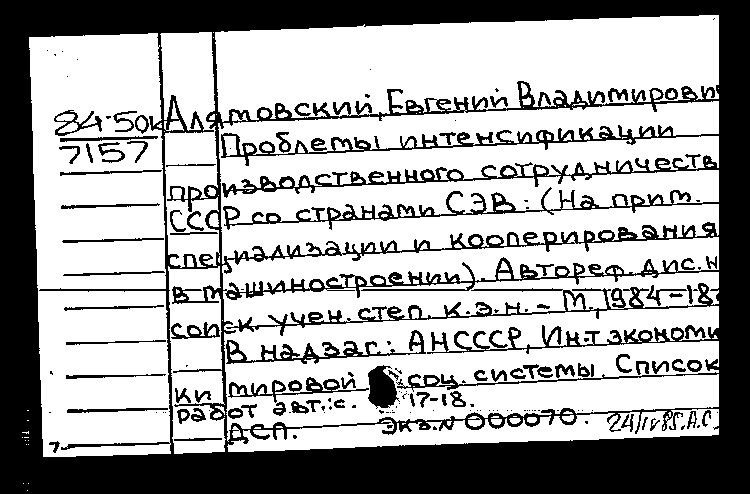 84-50к Алятовский, Евгений Владимирови
7157 Проблемы интенсификации
производственного сотрудничеств
СССР со странами СЭВ: (На прим.
специализации и кооперирования
в машиностроении). Автореф. дис. н
соиск. учен. степ. к.э.н. - М., 1984 - 18с
В надзаг.: АНСССР, Ин-т экономи
ки мировой соц. системы. Список
работ авт.: с. 17-18.
ДСП. Экз. N 000070. 24/IV85. А.С.
7-